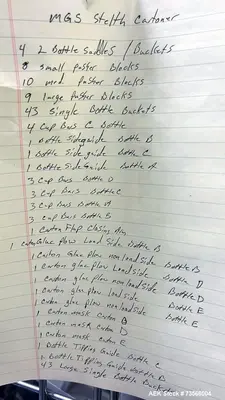 MGS Stelth Cartoner
4 2 Bottle Saddles / Buckets
8 small faster Blocks
10 med faster Blocks
9 large faster Blocks
43 Single Bottle Buckets
4 Cap Bars C Bottle
1 Bottle Sideguide Bottle B
1 Bottle Side guide Bottle C
1 Bottle Side Guide Bottle A
3 Cap Bars Bottle D
3 Cap Bars Bottle C
3 Cap Bars Bottle A
3 Cap Bars Bottle E
1 Carton Flap Closing Arm
1 carton Glue Plow Load Side Bottle B
1 Carton Glue Plow nonload side Bottle B
1 Carton glue plow Loadside Bottle D
1 Carton glue plow nonloadside Bottle D
1 Carton glue plow loadside Bottle E
1 Carton glue plow nonloadside Bottle E
1 Carton mask Carton B
1 Carton mask Carton D
1 Carton mask Carton E
1 Bottle Tipping Guide Bottle C
1 Bottle Tipping Guide Bottle D
43 Large Single Bottle Buckets
AEK Stock # 73566004